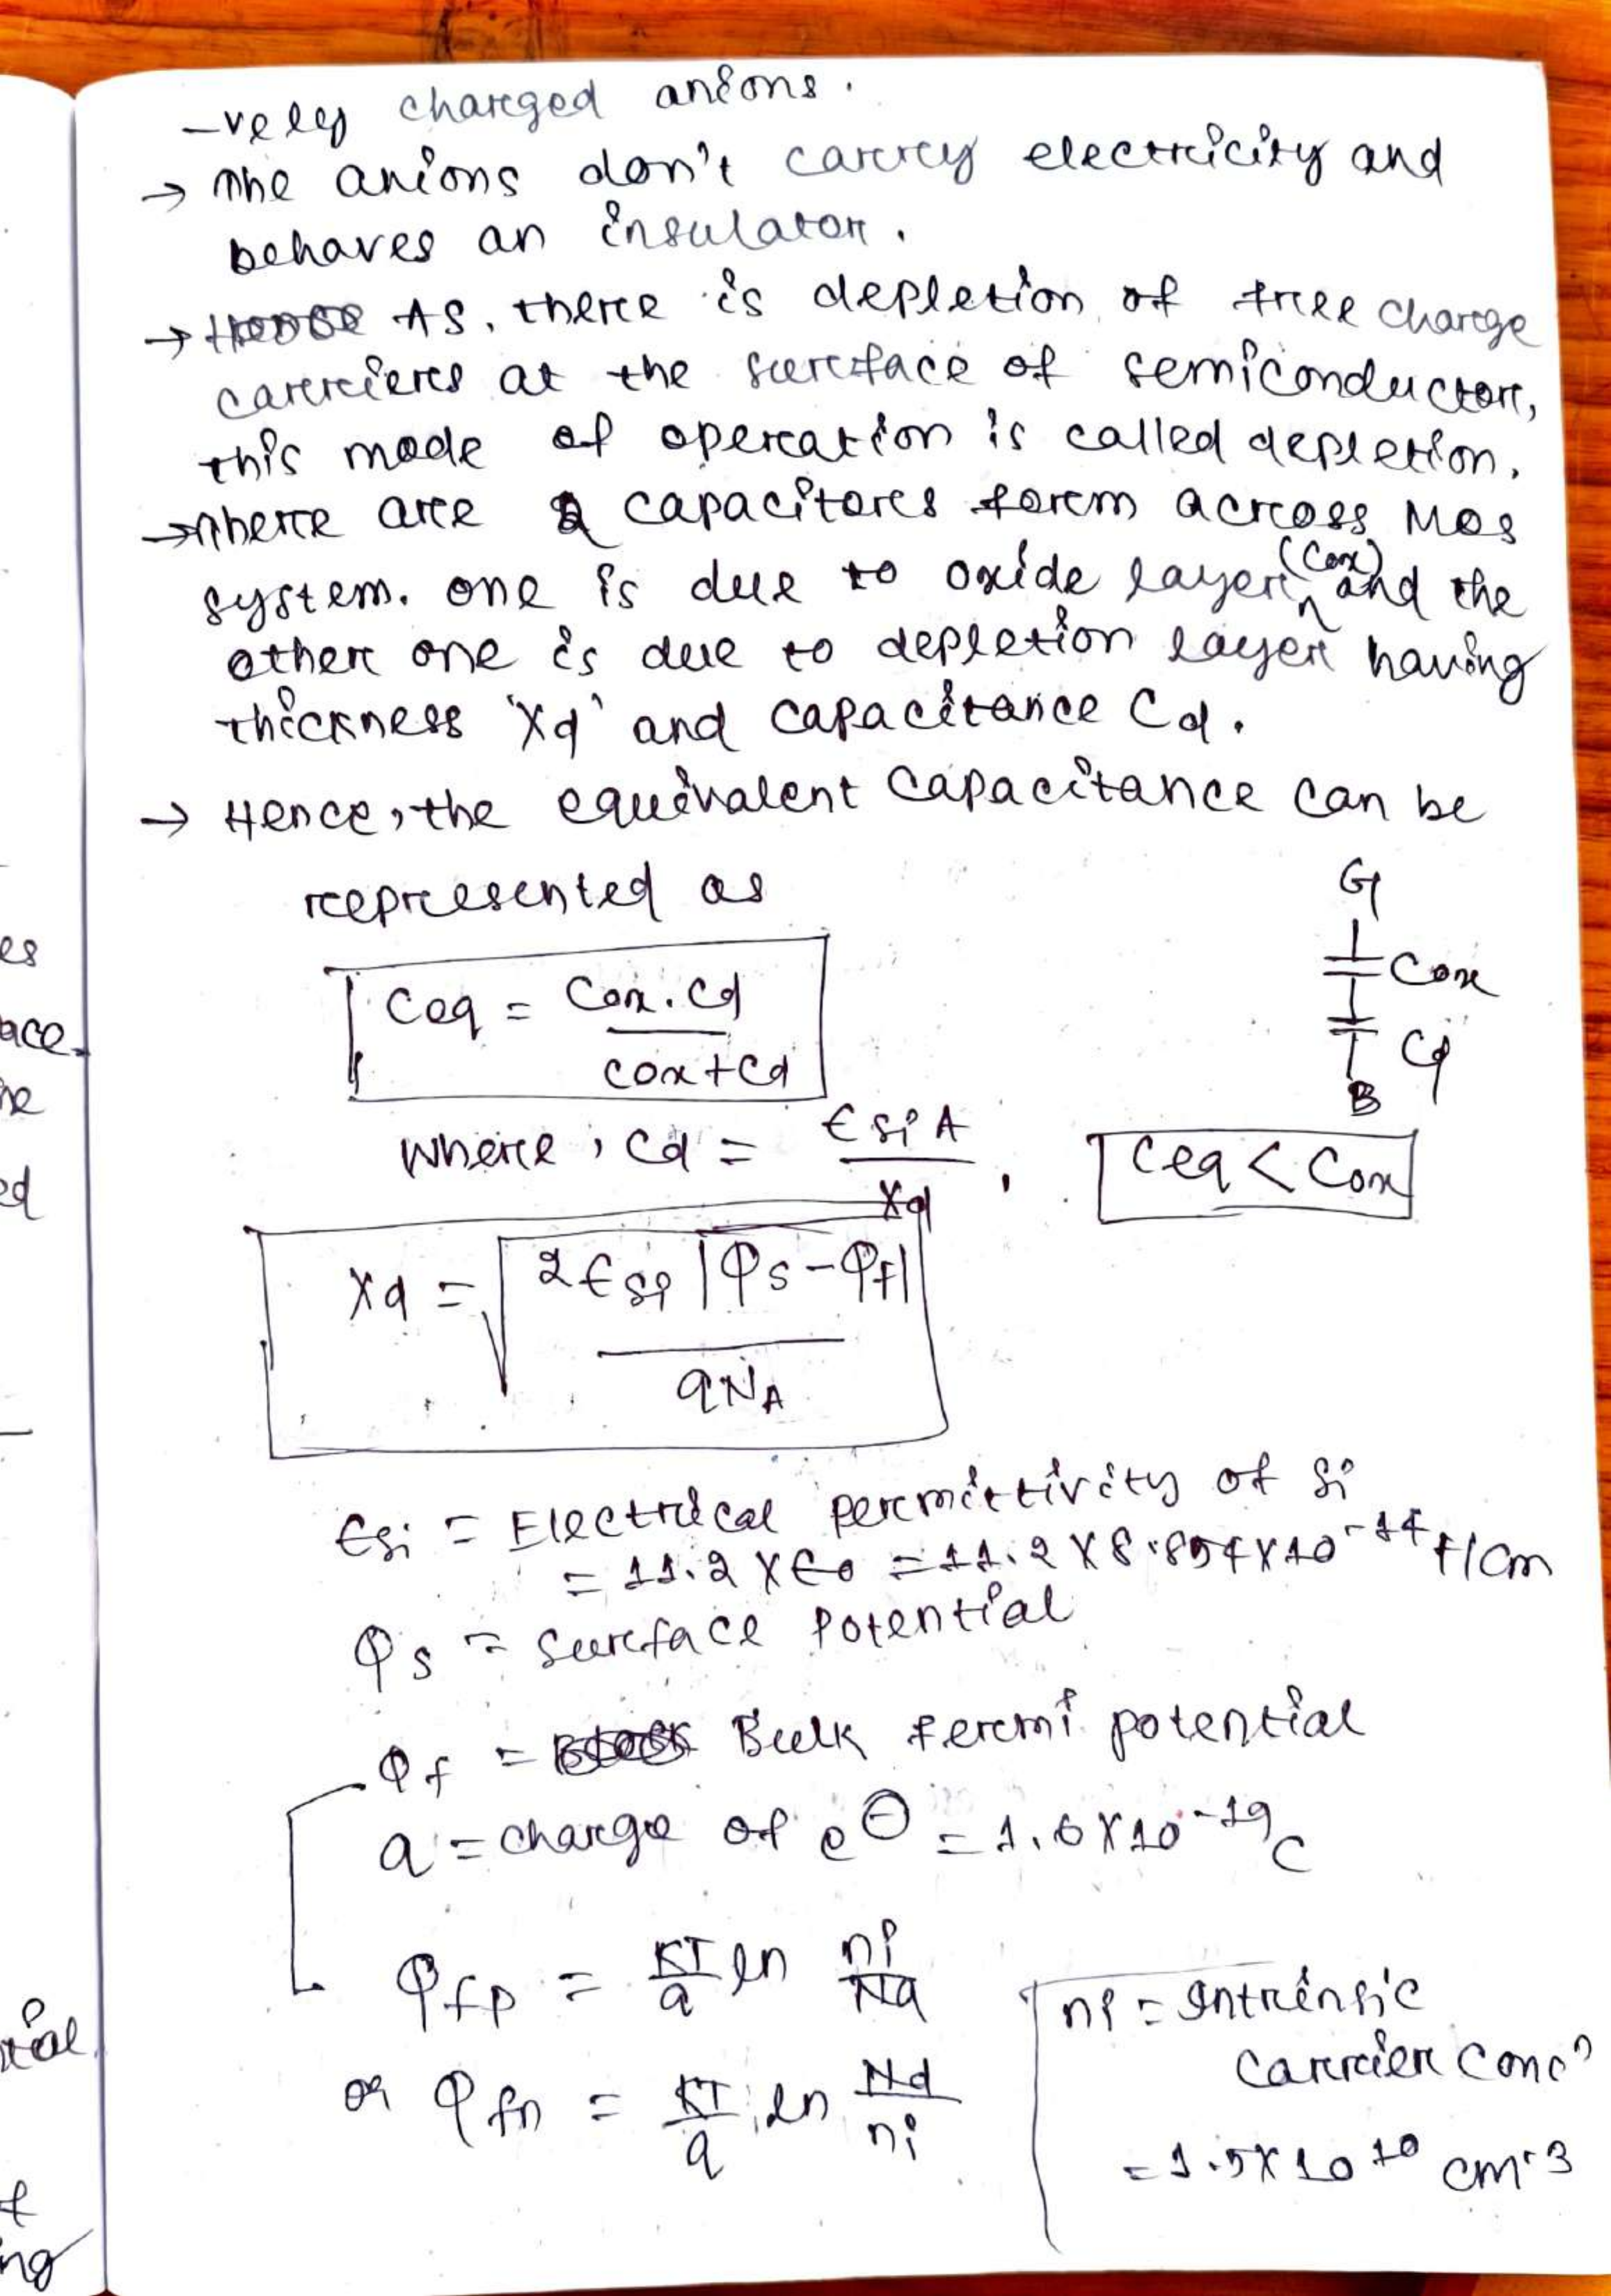 -vely charged anions.
→ The anions don't carry electricity and
behaves an insulator.
→ As, there is depletion of free charge
carriers at the surface of semiconductor,
this mode of operation is called depletion.
→ There are 2 capacitors form across MOS
system. one is due to oxide layer (Cox) and the
other one is due to depletion layer having
thickness 'Xd' and capacitance Cd.
→ Hence, the equivalent capacitance can be
represented as
G
Ceq = Cox.Cd / Cox+Cd
Cox
Cd
B
where, Cd = ϵsi A / Xd , Ceq < Cox
Xd = √(2ϵsi |φs-φf| / qNA)
ϵsi = Electrical permittivity of Si
= 11.2 X ϵ0 = 11.2 X 8.854 X 10^-14 F/cm
φs = Surface Potential
φf = Bulk fermi potential
q = charge of e⊖ = 1.6 X 10^-19 C
φfp = KT/q ln ni/Na
ni = Intrinsic
carrier concn
or φfn = KT/q ln Nd/ni
= 1.5 X 10^10 cm-3
es
ace.
he
ed
tial
f
ng